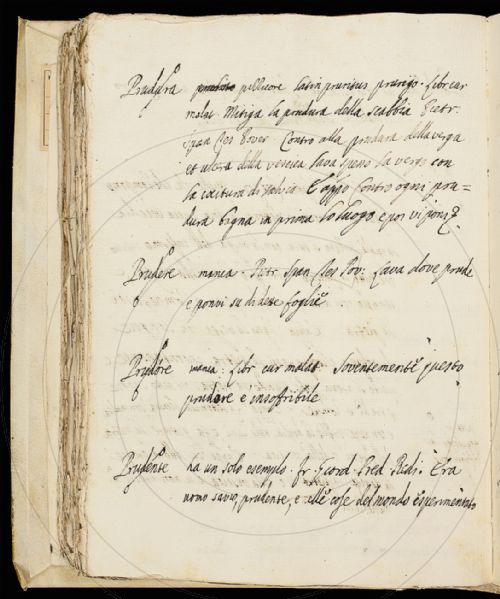 Prudura prudito pellicore latin pruritus prurigo. libr. cur.
malat. Mitiga la prudura della scabbia Pietr.
Span Tes Pover. Contro alla prudura della verga
et ulcera della vescica lava spesso la verga con
la cocitura di salvia E appo Contro ogni pru=
dura bagna in prima lo luogo e poi vi poni
Prudere manca. Pietr. Span Tes Pov. Lava dove prude
e ponvi su di dete foglie
Prudore manca. libr cur malat. Soventemente questo
prudore è insoffribile
Prudente ha un solo esemplo. fr. Giord. Pred. Redi. Era
uomo savio, prudente, e alle cose del mondo esperimentato